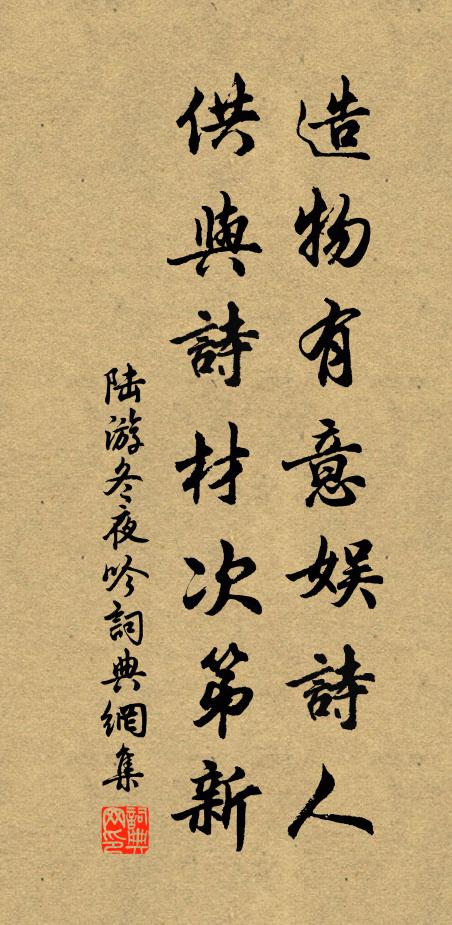 造物有意娱詩人
供與詩材次第新
陆游冬夜吟詞典網集
詞典
网印